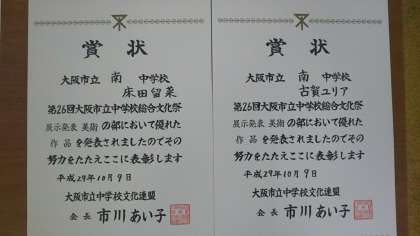 賞状
大阪市立 南 中学校
床田留菜
第26回大阪市立中学校総合文化祭
展示発表 美術 の部において優れた
作品 を発表されましたのでその
努力をたたえここに表彰します
平成29年10月9日
大阪市立中学校文化連盟
会長 市川あい子
賞状
大阪市立 南 中学校
古賀ユリア
第26回大阪市立中学校総合文化祭
展示発表 美術 の部において優れた
作品 を発表されましたのでその
努力をたたえここに表彰します
平成29年10月9日
大阪市立中学校文化連盟
会長 市川あい子